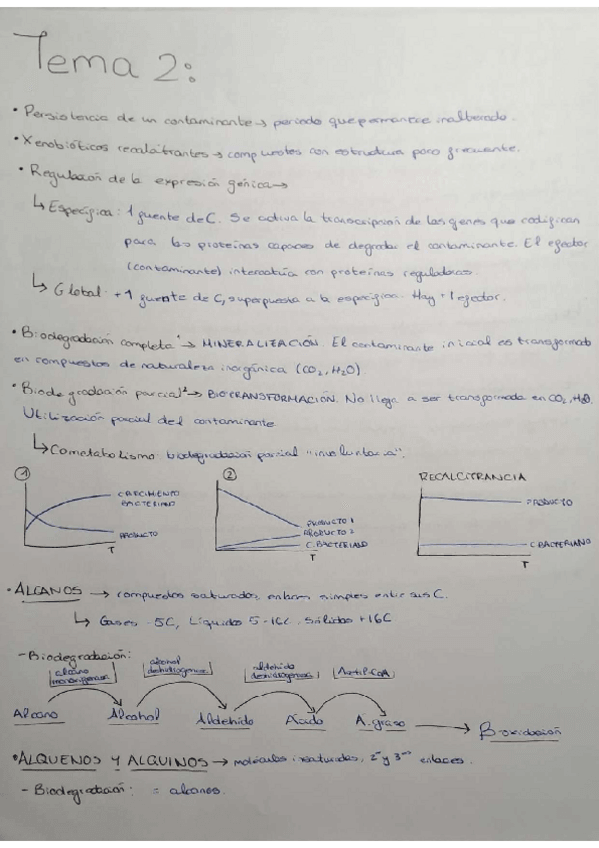 Tema 2:
• Persistencia de un contaminante → periodo que permanece inalterado.
• Xenobióticos recalcitrantes → compuestos con estructura poco frecuente.
• Regulación de la expresión génica →
↳ Específica: 1 fuente de C. Se activa la transcripción de los genes que codifican
para las proteínas capaces de degradar el contaminante. El efector
(contaminante) interactúa con proteínas reguladoras.
↳ Global: + 1 fuente de C, superpuesta a la específica. Hay + 1 efector.
• Biodegradación completa¹ → MINERALIZACIÓN. El contaminante inicial es transformado
en compuestos de naturaleza inorgánica (CO₂, H₂O).
• Biodegradación parcial² → BIOTRANSFORMACIÓN. No llega a ser transformada en CO₂, H₂O.
Utilización parcial del contaminante
↳ Cometabolismo: biodegradación parcial "involuntaria".
① CRECIMIENTO BACTERIANO PRODUCTO T
② PRODUCTO 1 PRODUCTO 2 C. BACTERIANO T
RECALCITRANCIA PRODUCTO C. BACTERIANO T
• ALCANOS → compuestos saturados, enlaces simples entre sus C.
↳ Gases -5C, Líquidos 5-16C, Sólidos +16C
- Biodegradación:
alcano monooxigenasa alcohol deshidrogenasa aldehído deshidrogenasa Acetil-CoA
Alcano Alcohol Aldehído Ácido A. graso → β-oxidación
• ALQUENOS Y ALQUINOS → moléculas insaturadas, 2 y 3 enlaces.
- Biodegradación: = alcanos.